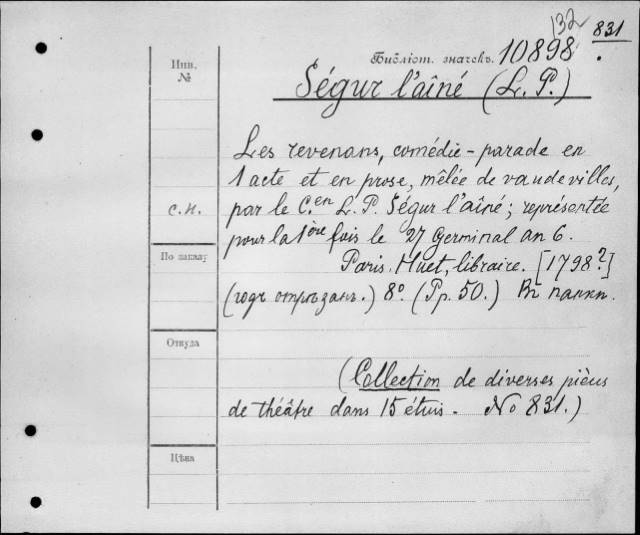 132 831
Библіот. значекъ. 10898.
Инв.
№
Ségur l'aîné (L. P.)
Les revenans, comédie-parade en
1 acte et en prose, mêlée de vaudevilles,
с.н. par le C.en L. P. Ségur l'aîné; représentée
pour la 1ère fois le 27 Germinal an 6.
По заказу
Paris. Huet, libraire. [1798?]
(годъ отрѣзанъ.) 8º. (Pp. 50.) Въ папкѣ.
Откуда
(Collection de diverses pièces
de théâtre dans 15 étuis. No 831.)
Цѣна